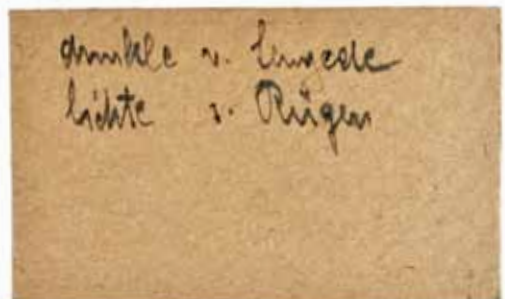 dunkle v. Lewede
lichte v. Rügen